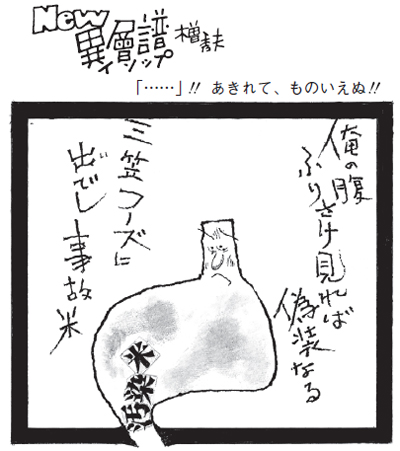 New
異層譜
イソップ
「……」!! あきれて、ものいえぬ!!
俺の腹
ふりさけ見れば
偽装なる
三笠フーズに
出でし事故米
米
汚染